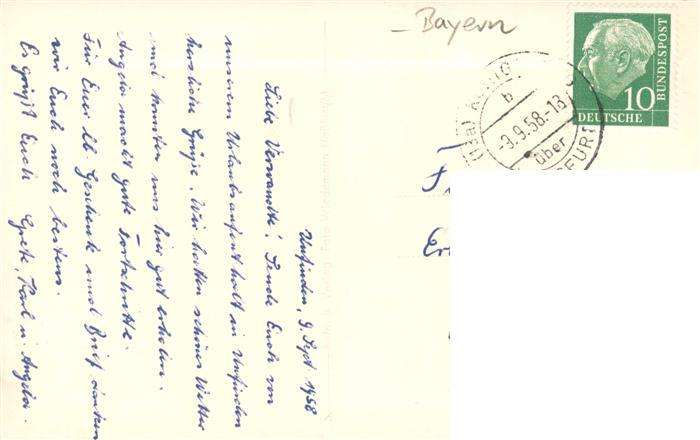 Bayern
DEUTSCHE BUNDESPOST
10
-9.9.58.-18
b
über
Unfinden, 9. Sept. 1958
Liebe Verwandte! Sende Euch von
unserem Urlaubsaufenthalt in Unfinden
herzliche Grüße. Wir hatten schönes Wetter
und konnten uns hier gut erholen.
Angela macht gute Fortschritte.
Für Euer lb. Geschenk und Brief danken
wir Euch noch bestens.
Es grüßt Euch Grete, Karl u. Angela.